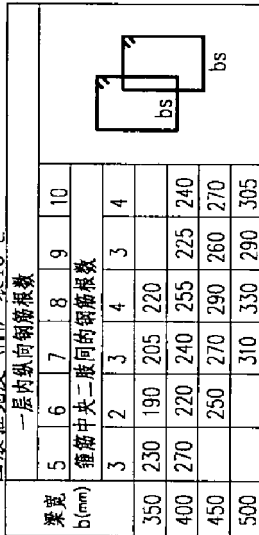 一层内纵向钢筋根数
梁宽
b(mm)
5 6 7 8 9 10
箍筋中央二肢间的钢筋根数
3 2 3 4 3 4
350 230 190 205 220
400 270 220 240 255 225 240
450 250 270 290 260 270
500 310 330 290 305
bs
bs